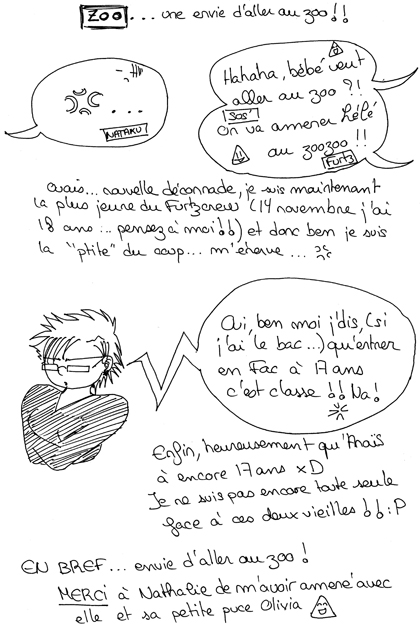 ZOO... une envie d'aller au zoo !!
...
NATAKU
Hahaha, bébé veut
aller au zoo ?!
SOS'
On va amener bébé
au zoozoo !!
Furtz
ouais... nouvelle déconnade, je suis maintenant
la plus jeune du Furtzcrew (14 novembre j'ai
18 ans... pensez à moi !!) et donc ben je suis
la "ptite" du coup... m'énerve...
Oui, ben moi j'dis, (si
j'ai le bac...) qu'entrer
en Fac à 17 ans
c'est classe !! Na !
Enfin, heureusement qu'Anaïs
à encore 17 ans xD
Je ne suis pas encore toute seule
face à ces deux vieilles !! :P
EN BREF... envie d'aller au zoo !
MERCI à Nathalie de m'avoir amené avec
elle et sa petite puce Olivia